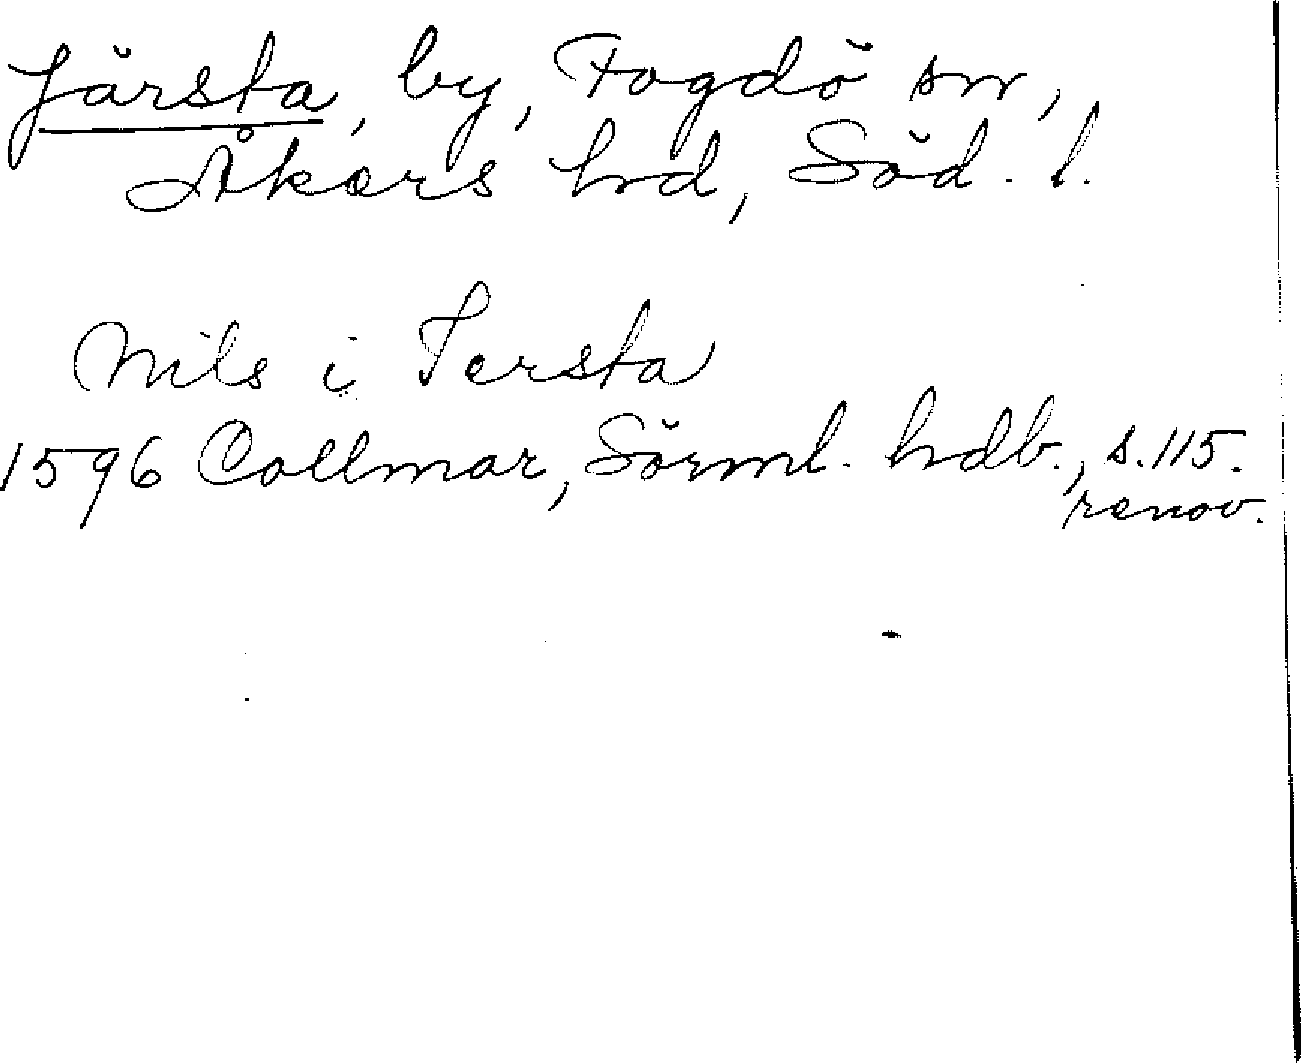 Järsta, by, Fogdö sn,
Åkers hd, Söd. l.
Nils i Jersta
1596 Collmar, Sörml. hdb., s. 115.
renov.